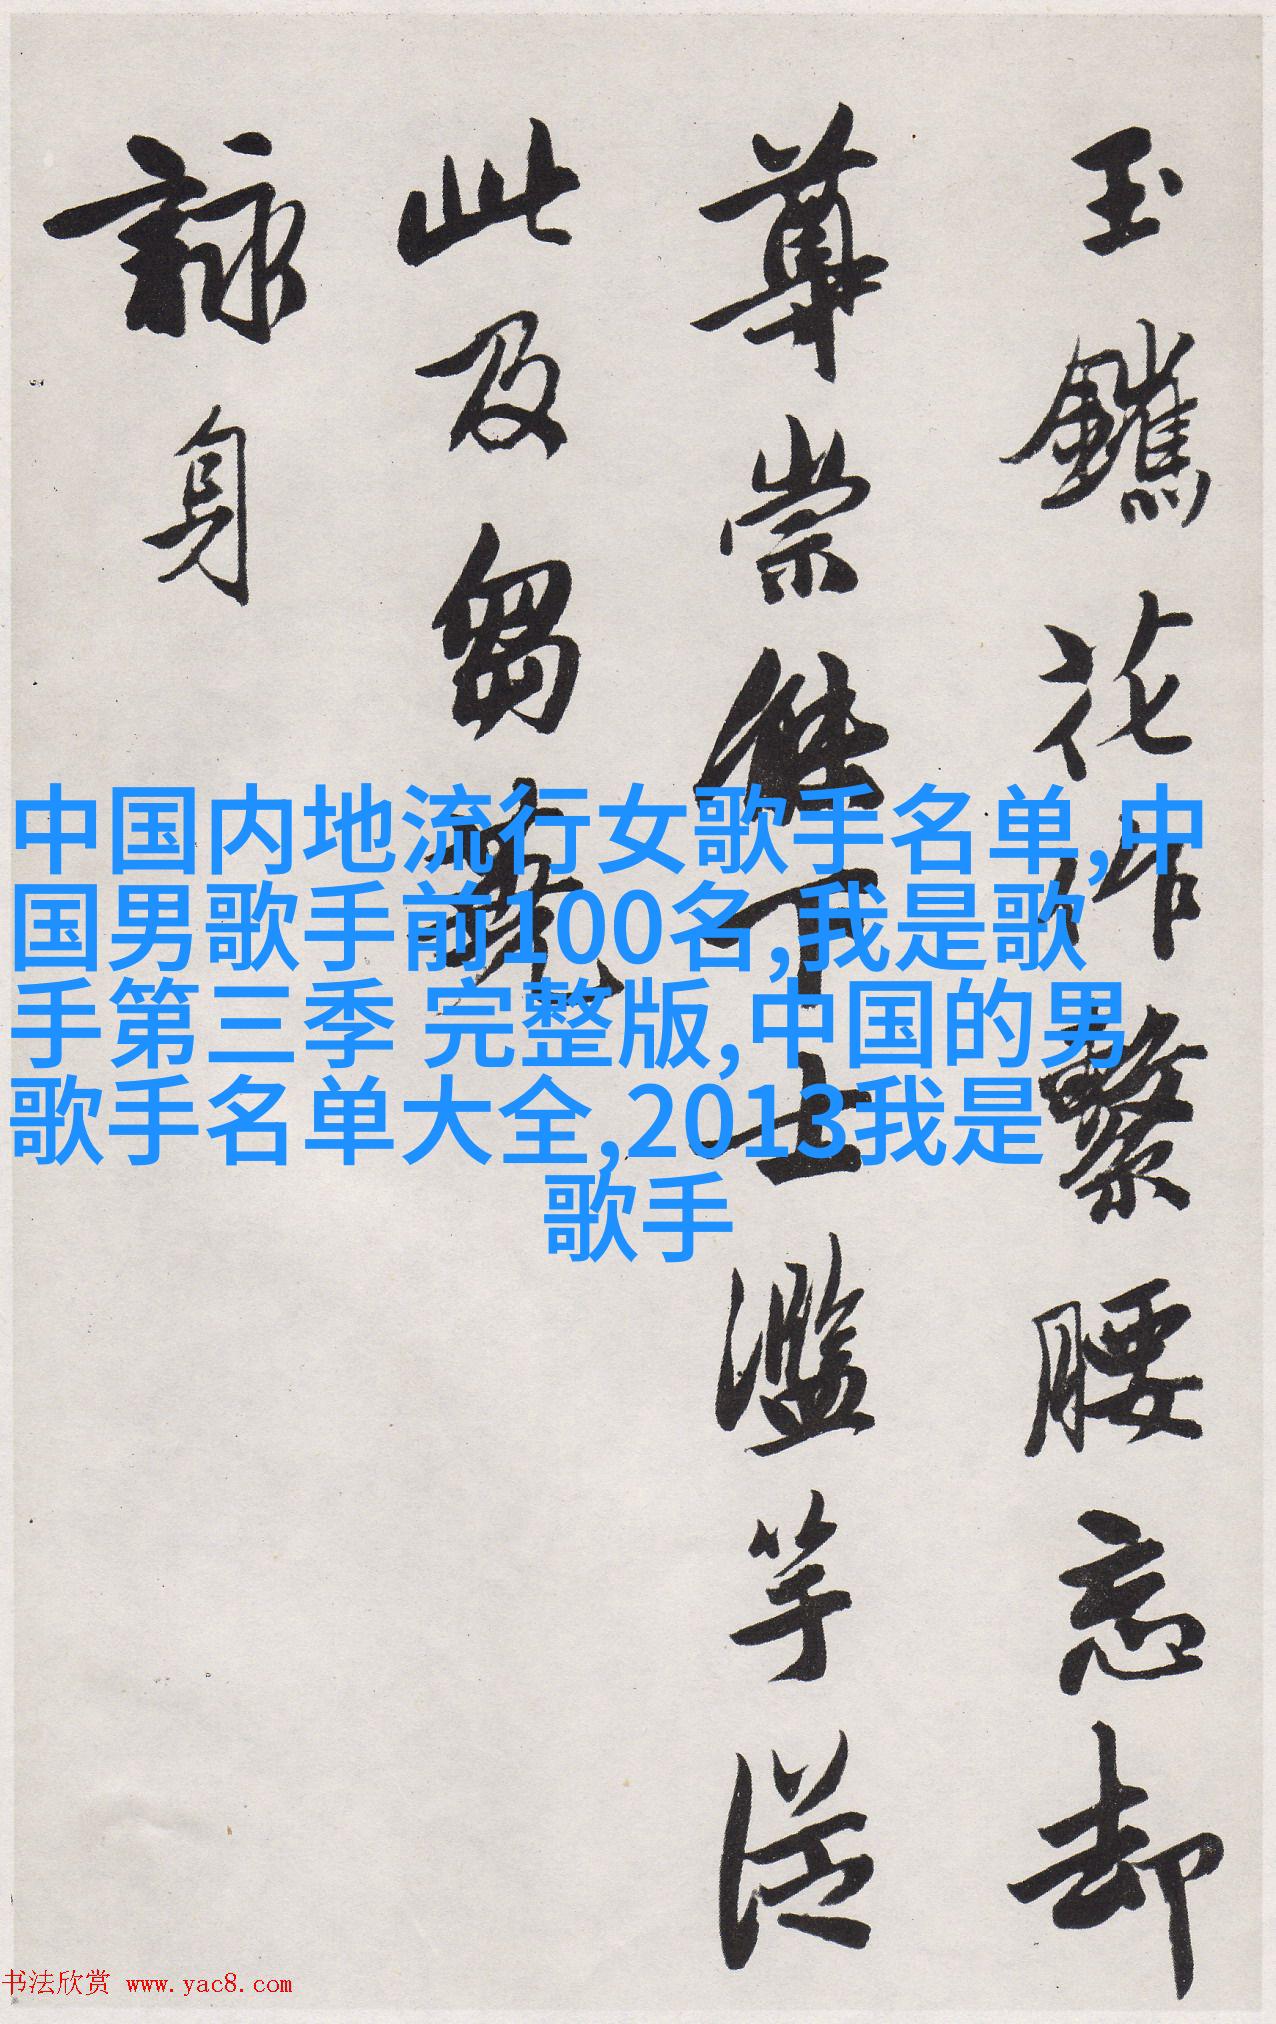 玉花作繫腰忘却
崇下士濫竽從
此及芻蕘
身
中国内地流行女歌手名单,中
国男歌手前100名,我是歌
手第三季 完整版,中国的男
歌手名单大全,2013我是
歌手
书法欣赏 www.yac8.com